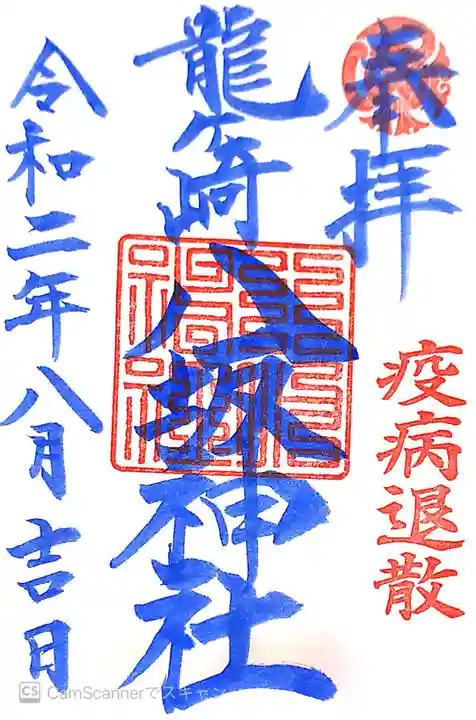 奉拝
疫病退散
龍ヶ崎
八坂神社
令和二年八月吉日
CS CamScannerでスキャン